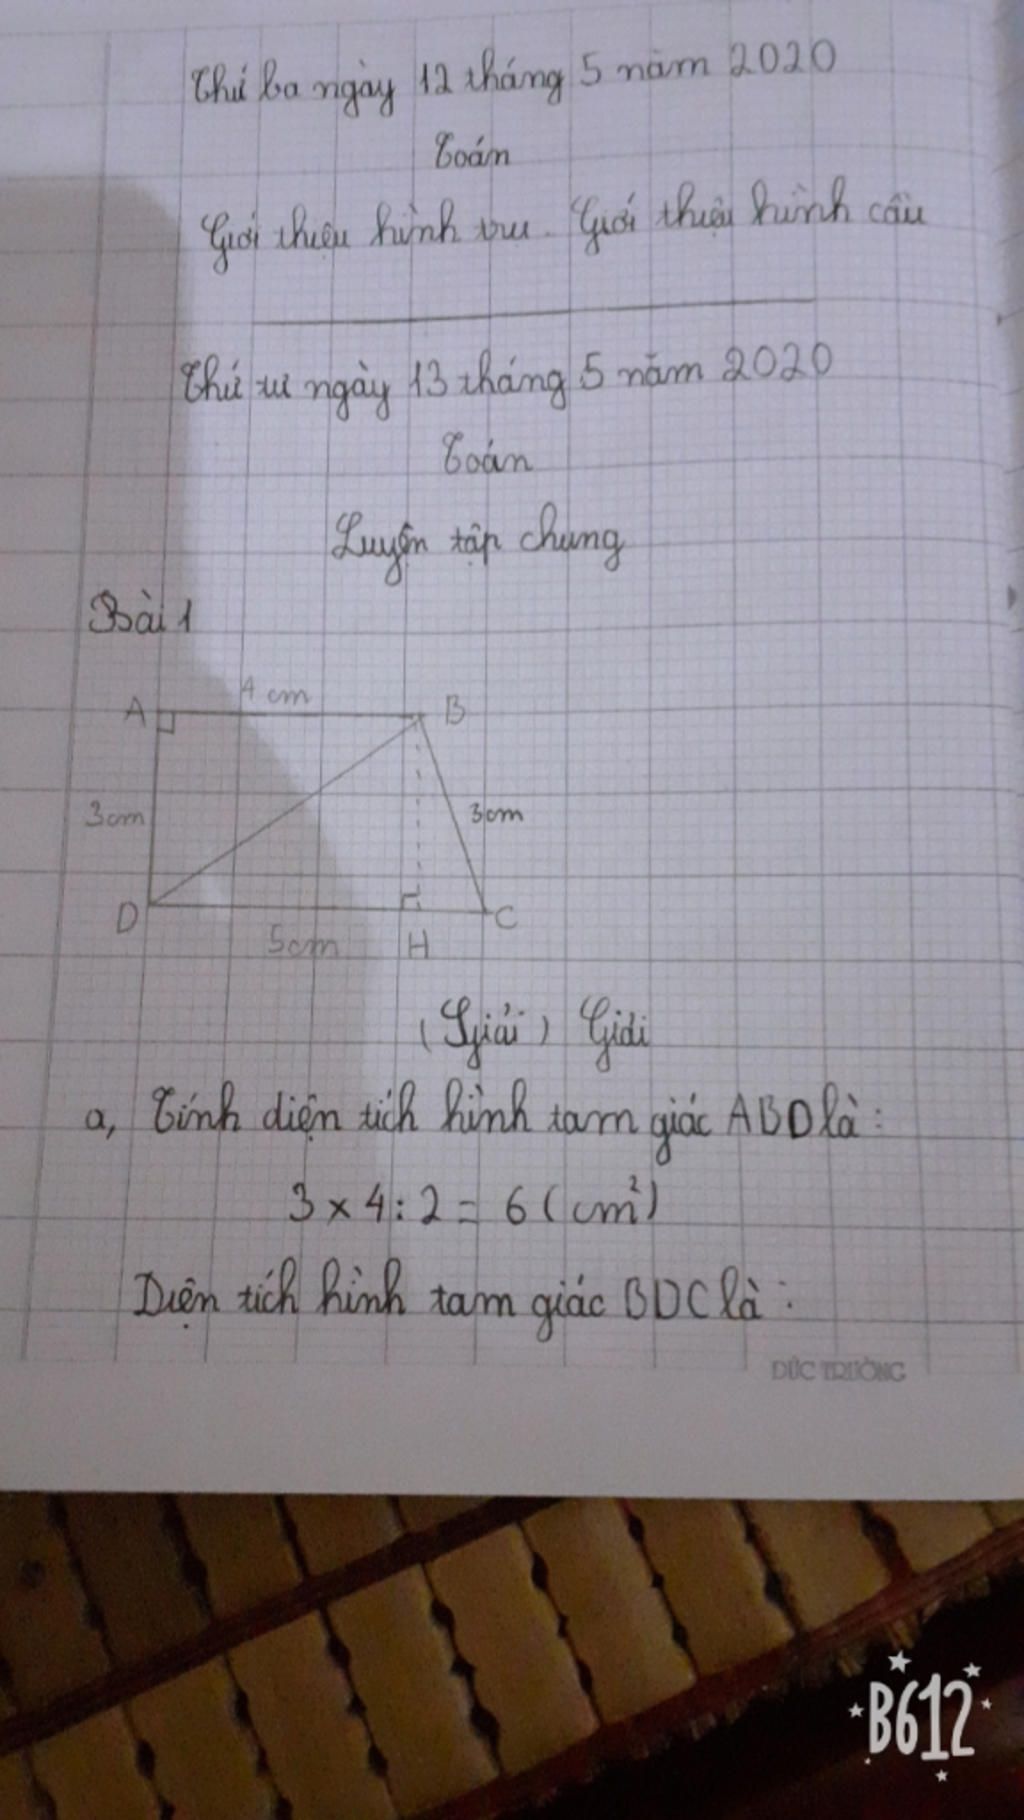 Thứ ba ngày 12 tháng 5 năm 2020
Toán
Giới thiệu hình trụ. Giới thiệu hình cầu
Thứ tư ngày 13 tháng 5 năm 2020
Toán
Luyện tập chung
Bài 1
4 cm
A B
3cm 3cm
D H C
5cm
(Giải) Giải
a, Tính diện tích hình tam giác ABD là:
3 × 4 : 2 = 6 (cm²)
Diện tích hình tam giác BDC là:
ĐỨC TRƯỜNG
B612